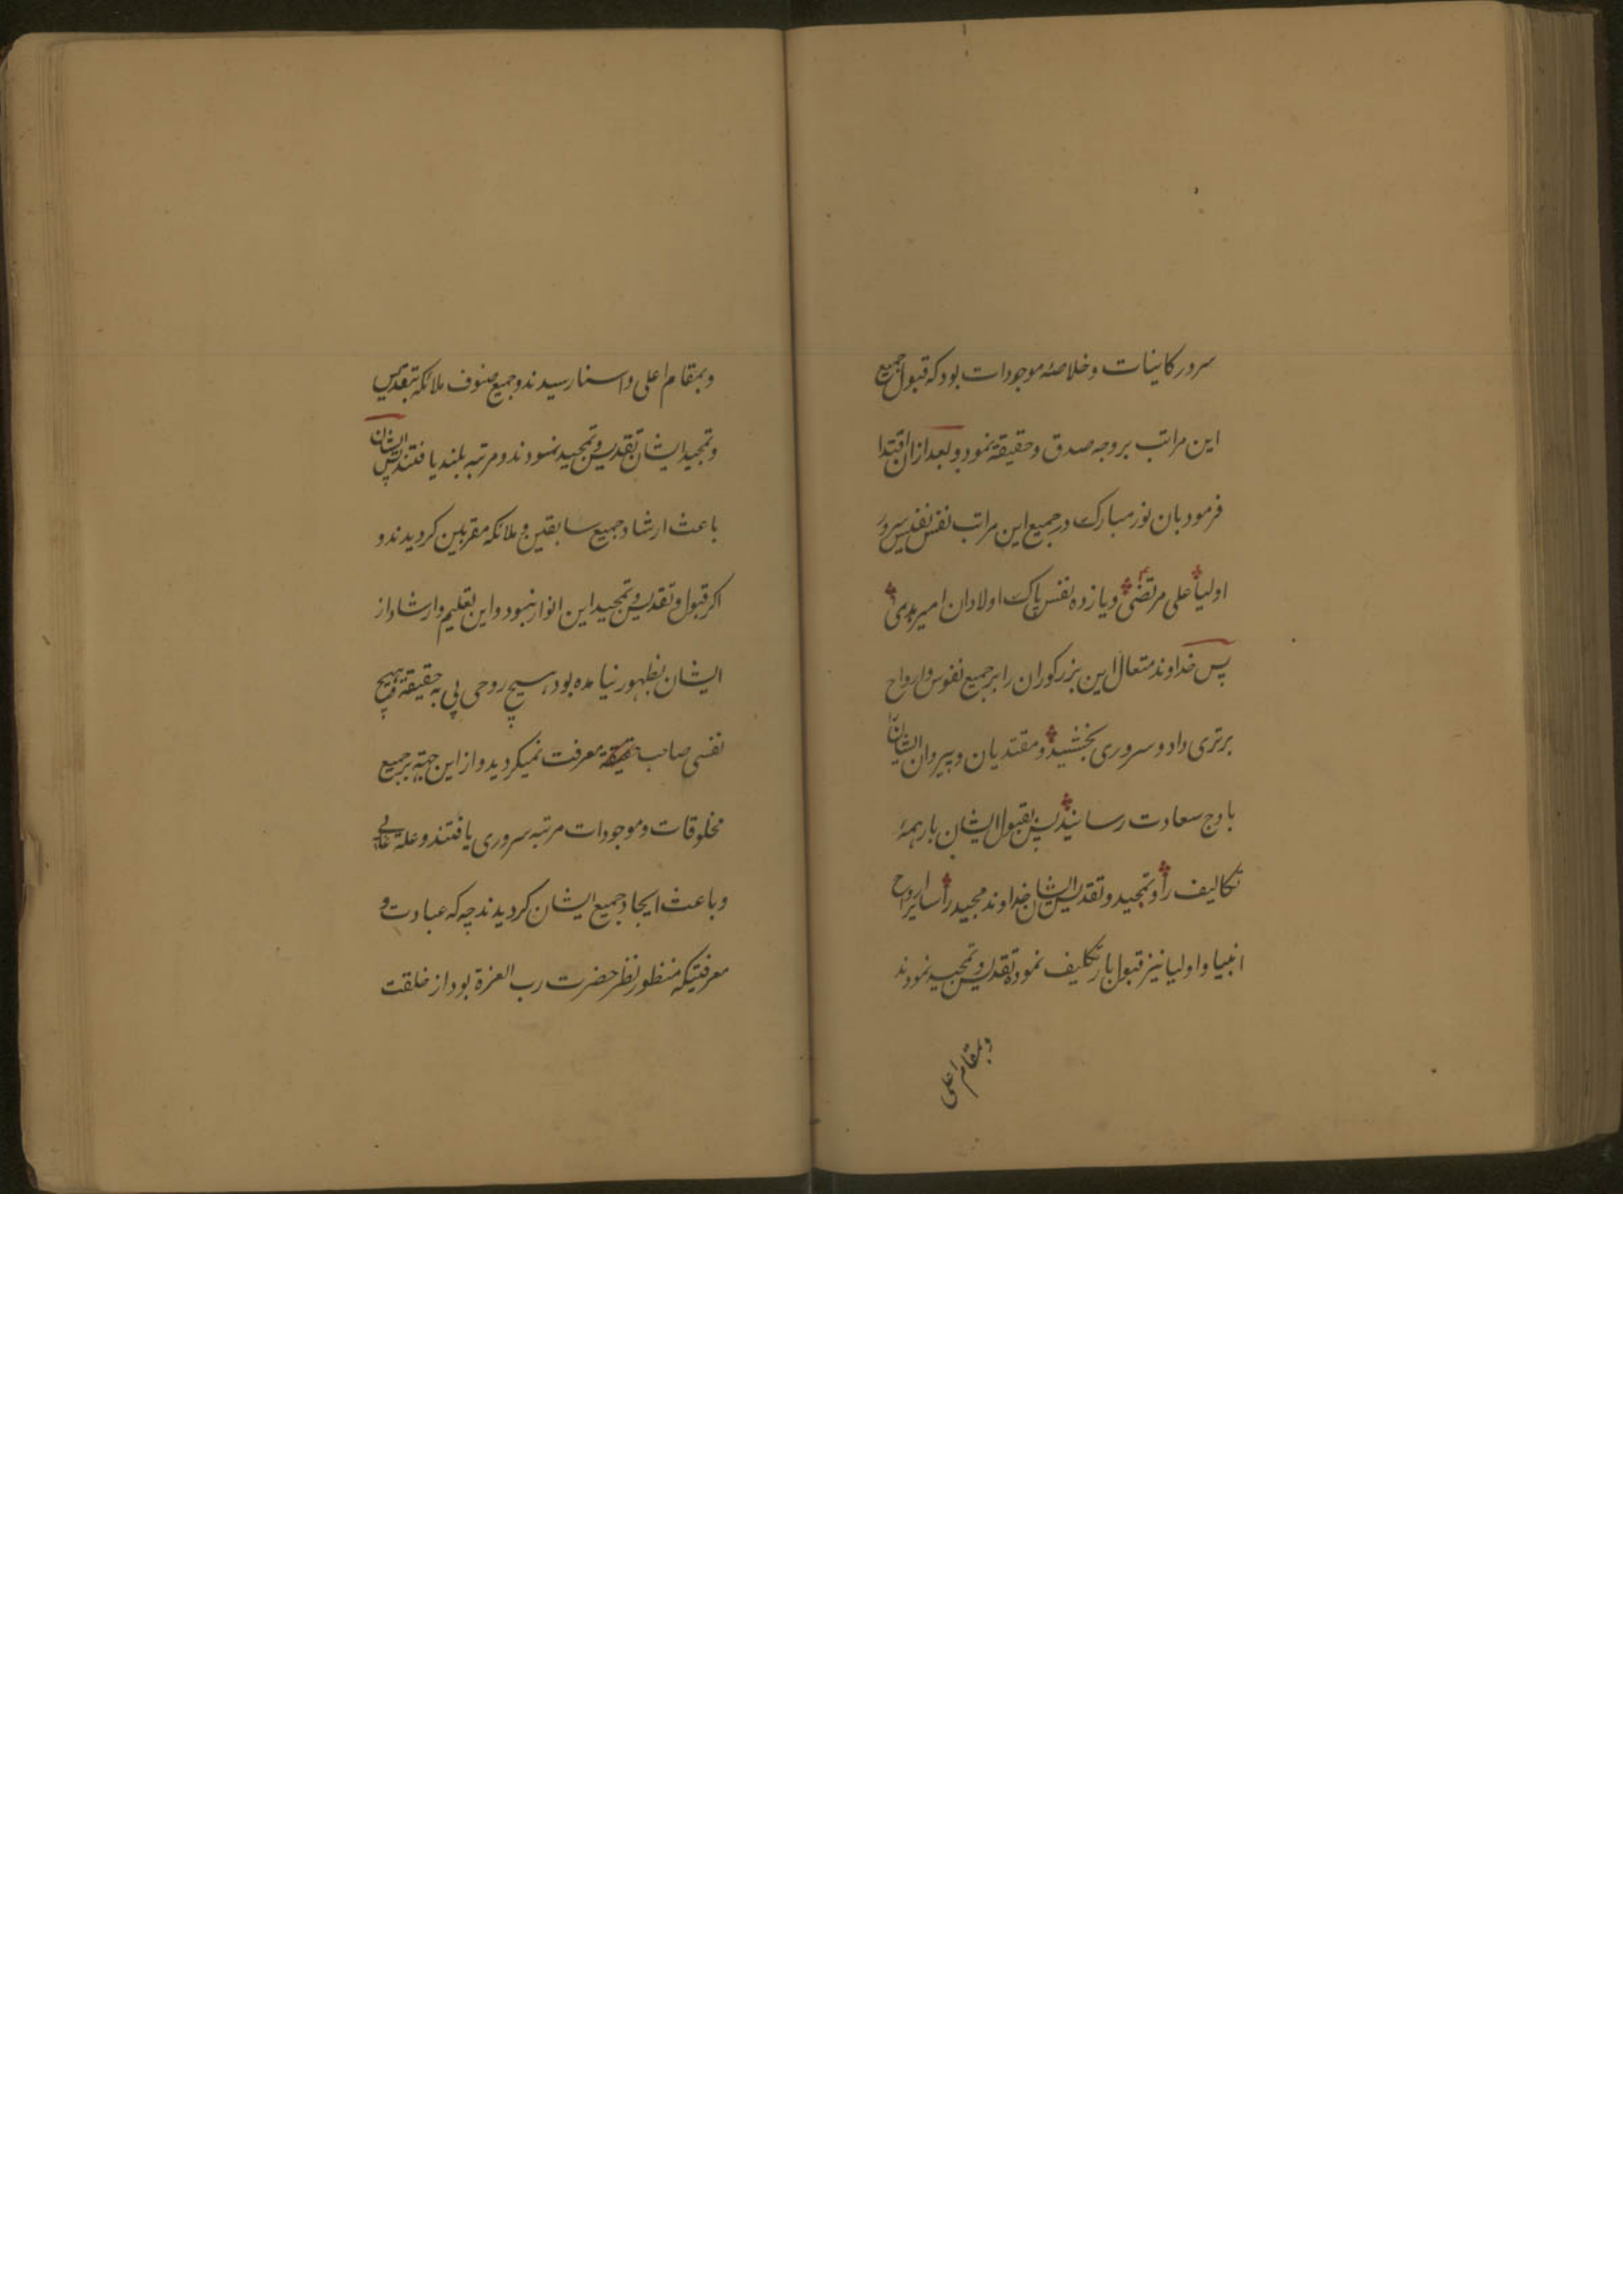 سرور کاینات و خلاصهٔ موجودات بود که قبول جمیع
این مراتب بر وجه صدق و حقیقة نمود و بعد از ان اقتدا
فرمود بان نور مبارک در جمیع این مراتب نفس نفیس سرور
اولیا علی مرتضی و یازده نفس پاک اولادان امیر بدی
پس خداوند متعال این بزرکوران را بر جمیع نفوس و ارواح
برتری داد و سروری بخشید و مقتدیان و پیروان ایشانرا
باوج سعادت رسانید پس بقبول ایشان بار همهٔ
تکالیف را و تمجید و تقدیس ایشان خداوند مجید را سایر ارواح
انبیا و اولیا نیز قبول بار تکلیف نموده تقدیس و تمجید نمودند
و بمقام اعلی
و بمقام اعلی و اسنا رسیدند و جمیع صنوف ملائکه بتقدیس
و تمجید ایشان تقدیس و تمجید نمودند و مرتبه بلند یافتند پس ایشان
باعث ارشاد جمیع سابقین و ملائکه مقربین کردیدند و
اکر قبول و تقدیس و تمجید این انوار نبود و این تعلیم و ارشاد از
ایشان بظهور نیامده بود هیچ روحی پی به حقیقة و هیچ
نفسی صاحب حقیقة معرفت نمیکردید و از این جهة بر جمیع
مخلوقات و موجودات مرتبه سروری یافتند و علة غایی
و باعث ایجاد جمیع ایشان کردیدند چه که عبادت و
معرفتیکه منظور نظر حضرت رب العزة بود از خلقت